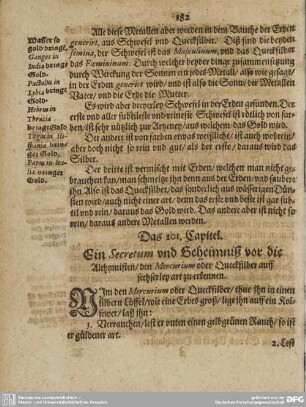 182
Wasser so
gold bringē.
Ganges in
India bringt
Gold.
Pactolus in
Lydia bringt
Gold.
Hebrus in
Thracia
bringt Gold
Tagus in Hi-
spania brin-
get Gold.
Padus in Ita-
lia bringet
Gold.
Alle diese Metallen aber werden in dem Bauche der Erden
generirt, aus Schwefel und Quecksilber. Diß sind die beyden
semina, der Schwefel ist das Masculeinum, und das Quecksilber
das Fœmininum: Durch welcher beyder dinge zusammenfügung
durch Wirckung der Sonnen ein jedes Metall/ also wie gesagt/
in der Erden generirt wird/ und ist also die Sonne die Metallen
Vater/ und die Erde die Mutter.
Es wird aber dreyerley Schwefel in der Erden gefunden. Der
erste und aller subtileste und reineste Schwefel ist rötlich von far-
ben/ ist sehr nützlich zur Artzeney/ aus welchem das Gold wird.
Der andere ist von farben etwas weißlicht/ ist auch wol rein/ a-
ber doch nicht so rein und gut/ als der erste/ daraus wird das
Silber.
Der dritte ist vermischt mit Erden/ welchen man nicht ge-
brauchen kan/ man schmeltze ihn denn aus der Erden/ und saubere
ihn. Also ist das Quecksilber/ das sonderlich aus wässerigen Dün-
sten wird/ auch nicht einer art/ denn das erste und beste ist gar sub-
til und rein/ daraus das Gold wird. Das andere aber ist nicht so
rein/ daraus andere Metallen werden.
Das 101. Capitel.
Ein Secretum und Geheimniß vor die
Alchymisten/ den Mercurium oder Quecksilber auff
sechserley art zu erkennen.
NIm den Mercurium oder Quecksilber/ thue ihn in einen
silbern Löffel/ wie eine Erbes groß/ lege ihn auff ein Kol-
fewer/ laß ihn:
1. Verrauchen/ lest er unten einen gelbgrünen Rauch/ so ist
er güldener art.
2. Lest